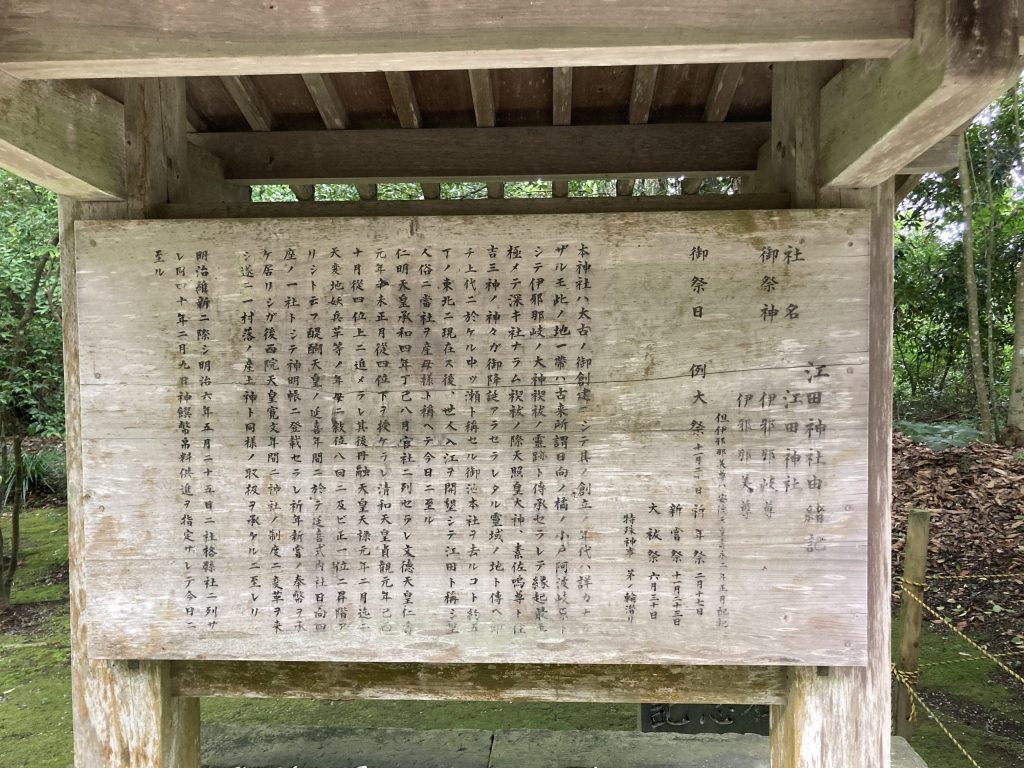 江田神社由緒記
社名 江田神社
御祭神 伊邪那岐尊
伊邪那美尊
但伊邪那美尊ハ安徳天皇
年正月配祀
御祭日 例大祭 十月二十日 祈年祭 二月十七日
新嘗祭 十一月二十三日
大祓祭 六月三十日
特殊神事 茅ノ輪潜リ
本神社ハ太古ノ御創建ニシテ其ノ創立ノ年代ハ詳カナ
ザルモ此ノ地一帯ハ古来所謂日向ノ橘ノ小戸阿波岐原ト
シテ伊邪那岐ノ大神禊祓ノ霊跡ト傳承セラレテ縁起最モ
極メテ深キ社ナラム禊祓ノ際天照皇大神、素佐嗚尊ト住
吉三神ノ神々ガ御降誕アラセラレタル霊域ノ地ト傳ヘ即
チ上代ニ於ケル中ツ瀬ト稱セル御池本社ヲ去ルコト約五
丁ノ東北ニ現在ス後、世人入江ヲ開墾シテ江田ト稱シ里
人俗ニ當社ヲ産母様ト稱ヘテ今日ニ至ル
仁明天皇承和四年丁巳八月官社ニ列セラレ文徳天皇仁壽
元年辛未正月從四位下ヲ授ケラレ清和天皇貞観元年己卯
十月從四位上ニ進メラレ其後円融天皇天禄元年二月迄ニ
天変地妖兵革等ノ年毎ニ数位八回ニ及ビ正一位ニ昇階ア
リシトテフ醍醐天皇ノ延喜年間ニ於テ延喜式内社日向四
座ノ一社トシテ神明帳ニ登載セラレ祈年新嘗ノ奉幣ヲ承
ケ居リシガ後西院天皇寛文年間ニ神社ノ制度ニ変革ヲ来
シ遂ニ一村落ノ産土神ト同様ノ取扱ヲ承ケルニ至レリ
明治維新ニ際シ明治六年五月二十五日ニ社格縣社ニ列サ
レ同四十年二月九日神饌幣帛料供進ヲ指定サレテ今日ニ
至ル